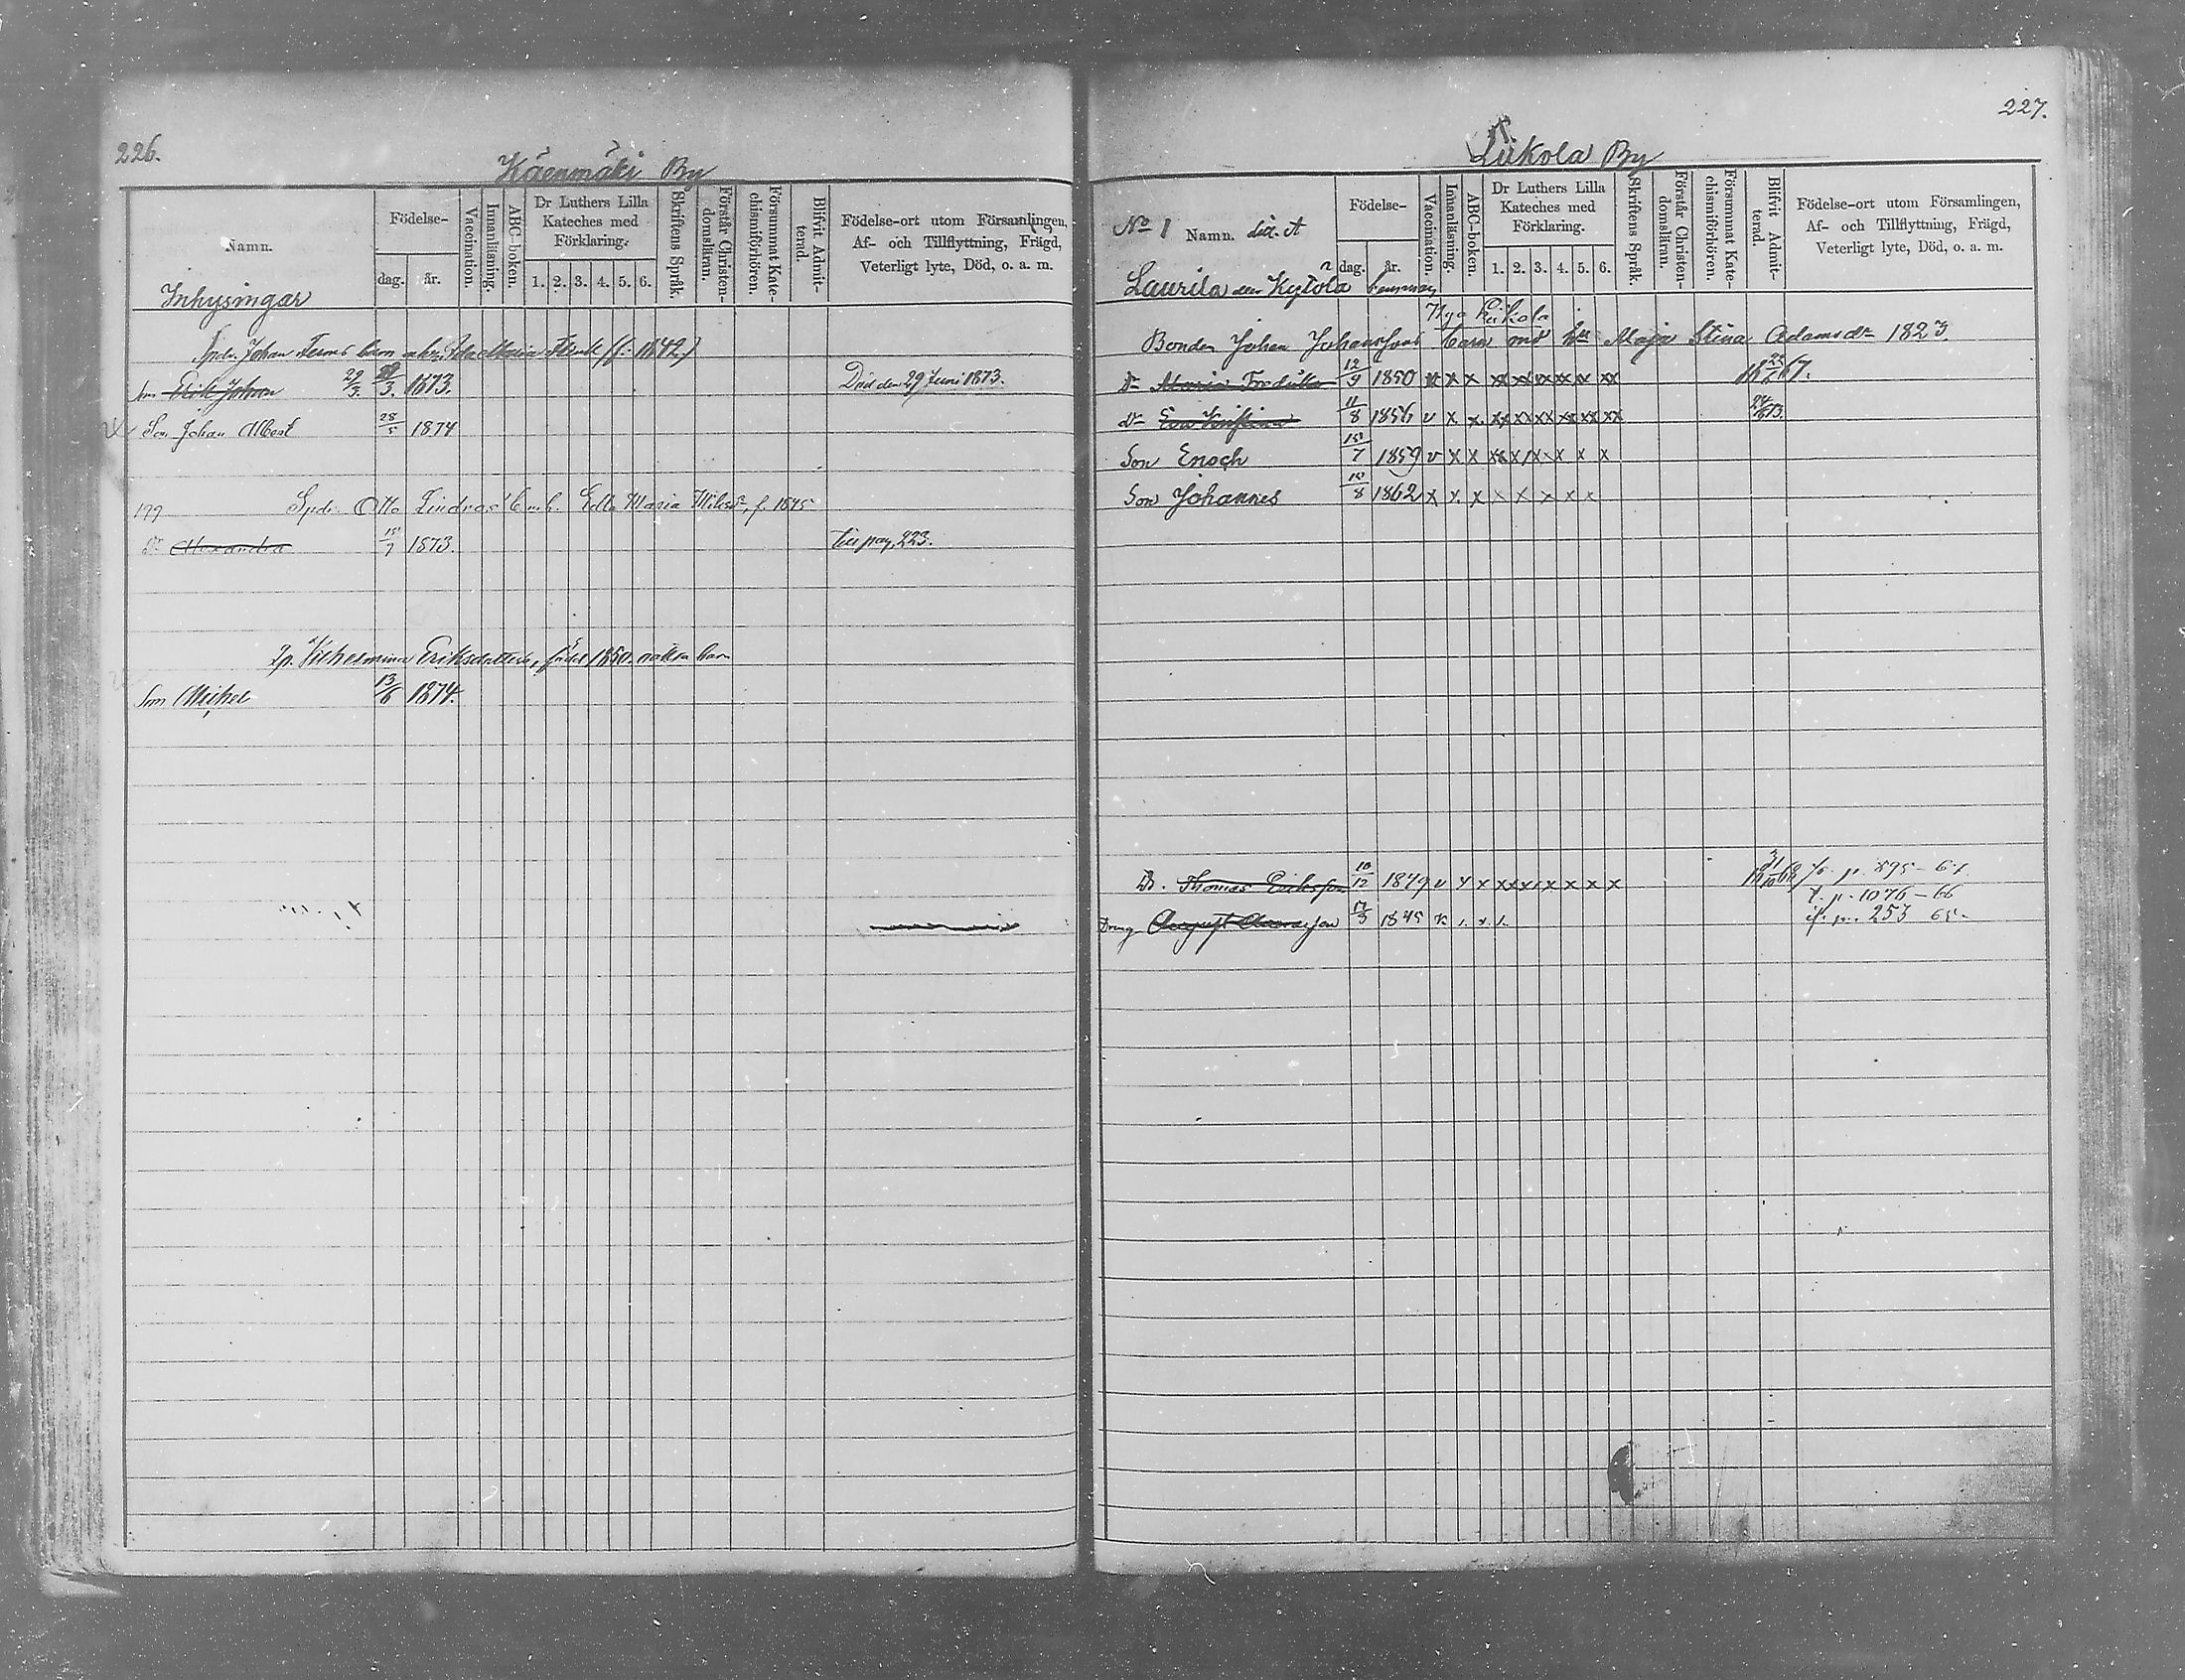 226.
Käenmäki By
Namn.
Födelse-
dag. år.
Vaccination.
Innanläsning.
ABC-boken.
Dr Luthers Lilla
Kateches med
Förklaring.
1. 2. 3. 4. 5. 6.
Skriftens Språk.
Förstår Christen-
domsläran.
Försummat Kate-
chismiförhören.
Blifvit Admit-
terad.
Födelse-ort utom Församlingen,
Af- och Tillflyttning, Frägd,
Veterligt lyte, Död, o. a. m.
Inhysingar
Johan barn Maria f. 1842
Erik Johan 29/3. 3. 1873. Död den 29 Juni 1873.
Son Johan Albert 28/5 1874
Otto Lindros b. m. h. Maria f. 1845
Dr Alexandra 15/7 1873. till pag. 223.
Vilhelmina Eriksdotter, född 1850. barn
Son Michel 13/6 1874.
227.
Liikola By
No 1 Namn. Lit. A
Födelse-
dag. år.
Vaccination.
Innanläsning.
ABC-boken.
Dr Luthers Lilla
Kateches med
Förklaring.
1. 2. 3. 4. 5. 6.
Skriftens Språk.
Förstår Christen-
domsläran.
Försummat Kate-
chismiförhören.
Blifvit Admit-
terad.
Födelse-ort utom Församlingen,
Af- och Tillflyttning, Frägd,
Veterligt lyte, Död, o. a. m.
Laurila eller Kytölä
Bonden Johan Johanssons barn med h. Maja Stina Adamsdr 1823.
Dr Maria 12/9 1850 x x
dr Eva 11/8 1856 v x x
Son Enoch 15/7 1859 v x x
Son Johannes 10/8 1862 x x x x x x x x
Dr. Thomas Eriksson 10/12 1849 v x x x x x x x x p. 895 - 67
p. 1076 - 66
Dreng August 17/3 1845 p. 253 65